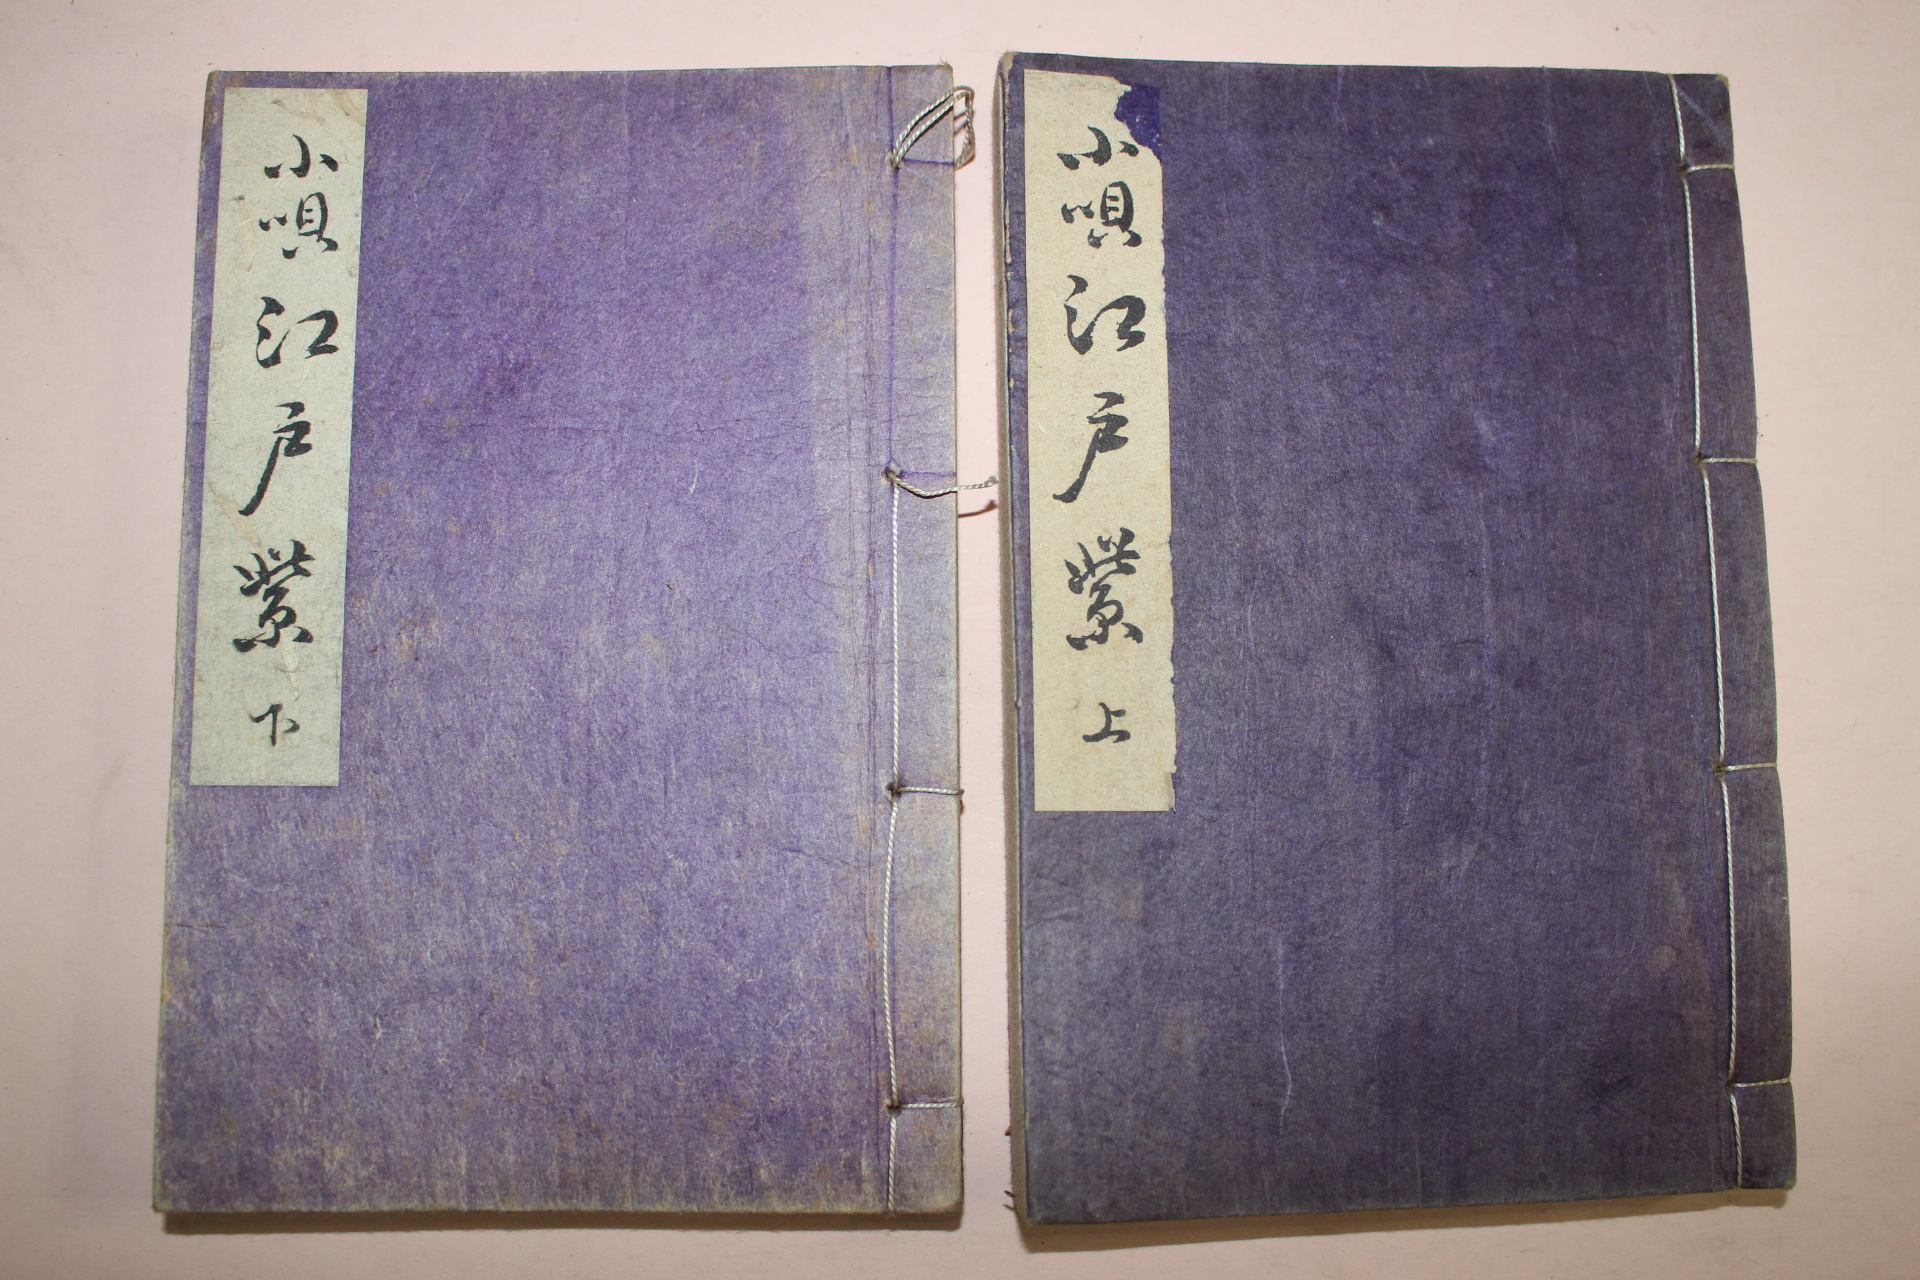 小唄江戸紫 上
小唄江戸紫 下